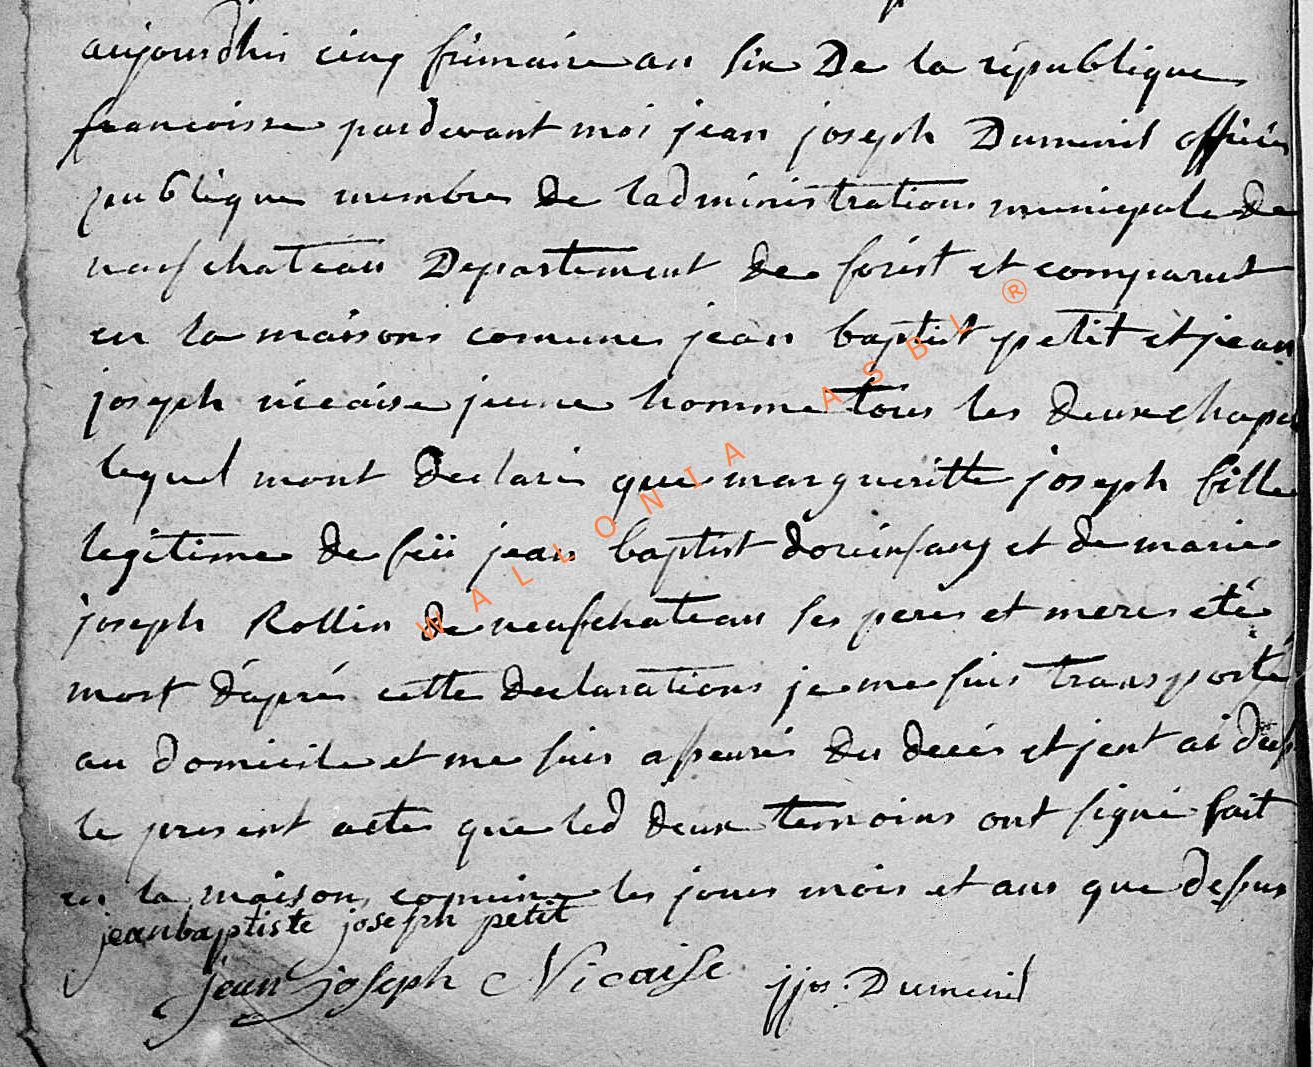 aujourdhui cinq frimaire an six De la république
francoisse pardevant moi jean joseph Dumenil officier
publique membre de ladministrations municipale de
neufchateau Departement de forêt et comparut
en la maisons comune jean baptist petit et jean
joseph nicaise jeune homme tous les deux
lequel mont declaré que margueritte joseph fille
legitime de feü jean baptist et de marie
joseph Rollin de neufchateau ses peres et meres eté
mort d'aprés cette declarations je me suis transporté
au domicile et me suis asseuré du decés et jent ai
le present acte que led deux temoins ont signé fait
en la maison comune les jours mois et ans que dessus
jeanbaptiste joseph petit
jean joseph Nicaise jjos. Dumenil
WALLONIA ASBL ®